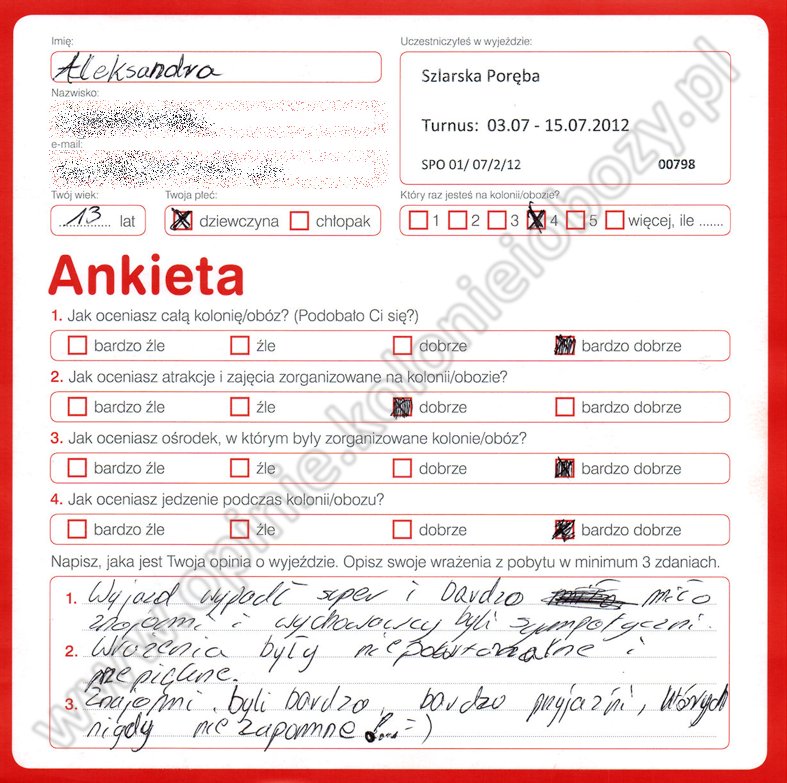 Imię:
Aleksandra
Uczestniczyłeś w wyjeździe:
Szlarska Poręba
Turnus: 03.07 - 15.07.2012
SPO 01/ 07/2/12 00798
Nazwisko:
e-mail:
Twój wiek:
13 lat
Twoja płeć:
dziewczyna chłopak
Który raz jesteś na kolonii/obozie?
1 2 3 4 5 więcej, ile .......
Ankieta
1. Jak oceniasz całą kolonię/obóz? (Podobało Ci się?)
bardzo źle źle dobrze bardzo dobrze
2. Jak oceniasz atrakcje i zajęcia zorganizowane na kolonii/obozie?
bardzo źle źle dobrze bardzo dobrze
3. Jak oceniasz ośrodek, w którym były zorganizowane kolonie/obóz?
bardzo źle źle dobrze bardzo dobrze
4. Jak oceniasz jedzenie podczas kolonii/obozu?
bardzo źle źle dobrze bardzo dobrze
Napisz, jaka jest Twoja opinia o wyjeździe. Opisz swoje wrażenia z pobytu w minimum 3 zdaniach.
1. Wyjazd wypadł super i bardzo miło
znajomi i wychowawcy byli sympatyczni.
2. Wrażenia były niepowtarzalne i
przepiękne.
3. Znajomi byli bardzo, bardzo przyjaźni, których
nigdy nie zapomnę !...=)
www.opinie.kolonieiobozy.pl